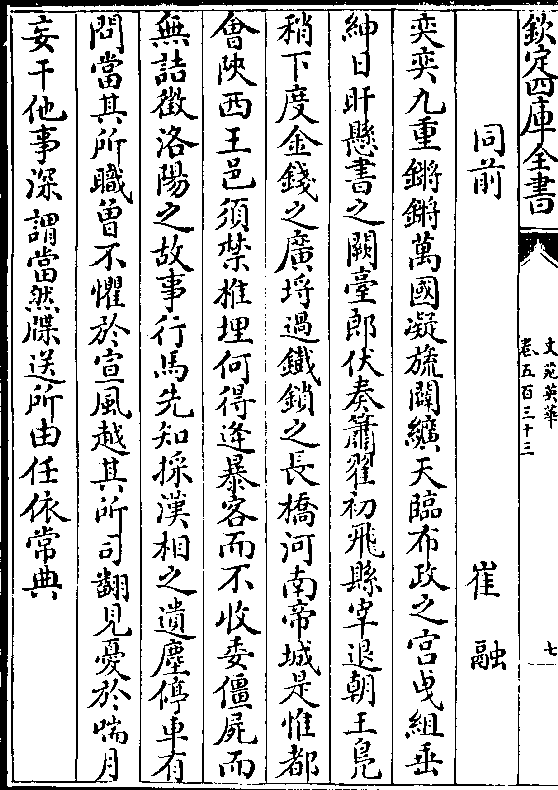 欽定四庫全書
文苑英華
卷五百三十三
七
同前 崔融
奕奕九重鏘鏘萬國凝旒闢纊天臨布政之宮曵組垂
紳日旰懸書之闕臺郎伏奏簫翟初飛縣宰退朝王鳬
稍下度金錢之廣埓過鐵鎖之長橋河南帝城是惟都
㑹陜西王邑須禁推埋何得逢暴客而不收委僵屍而
無詰徵洛陽之故事行馬先知採漢相之遺塵停車有
問當其所職曾不懼於宣風越其所司翻見憂於喘月
妄干他事深謂當然牒送所由任依常典